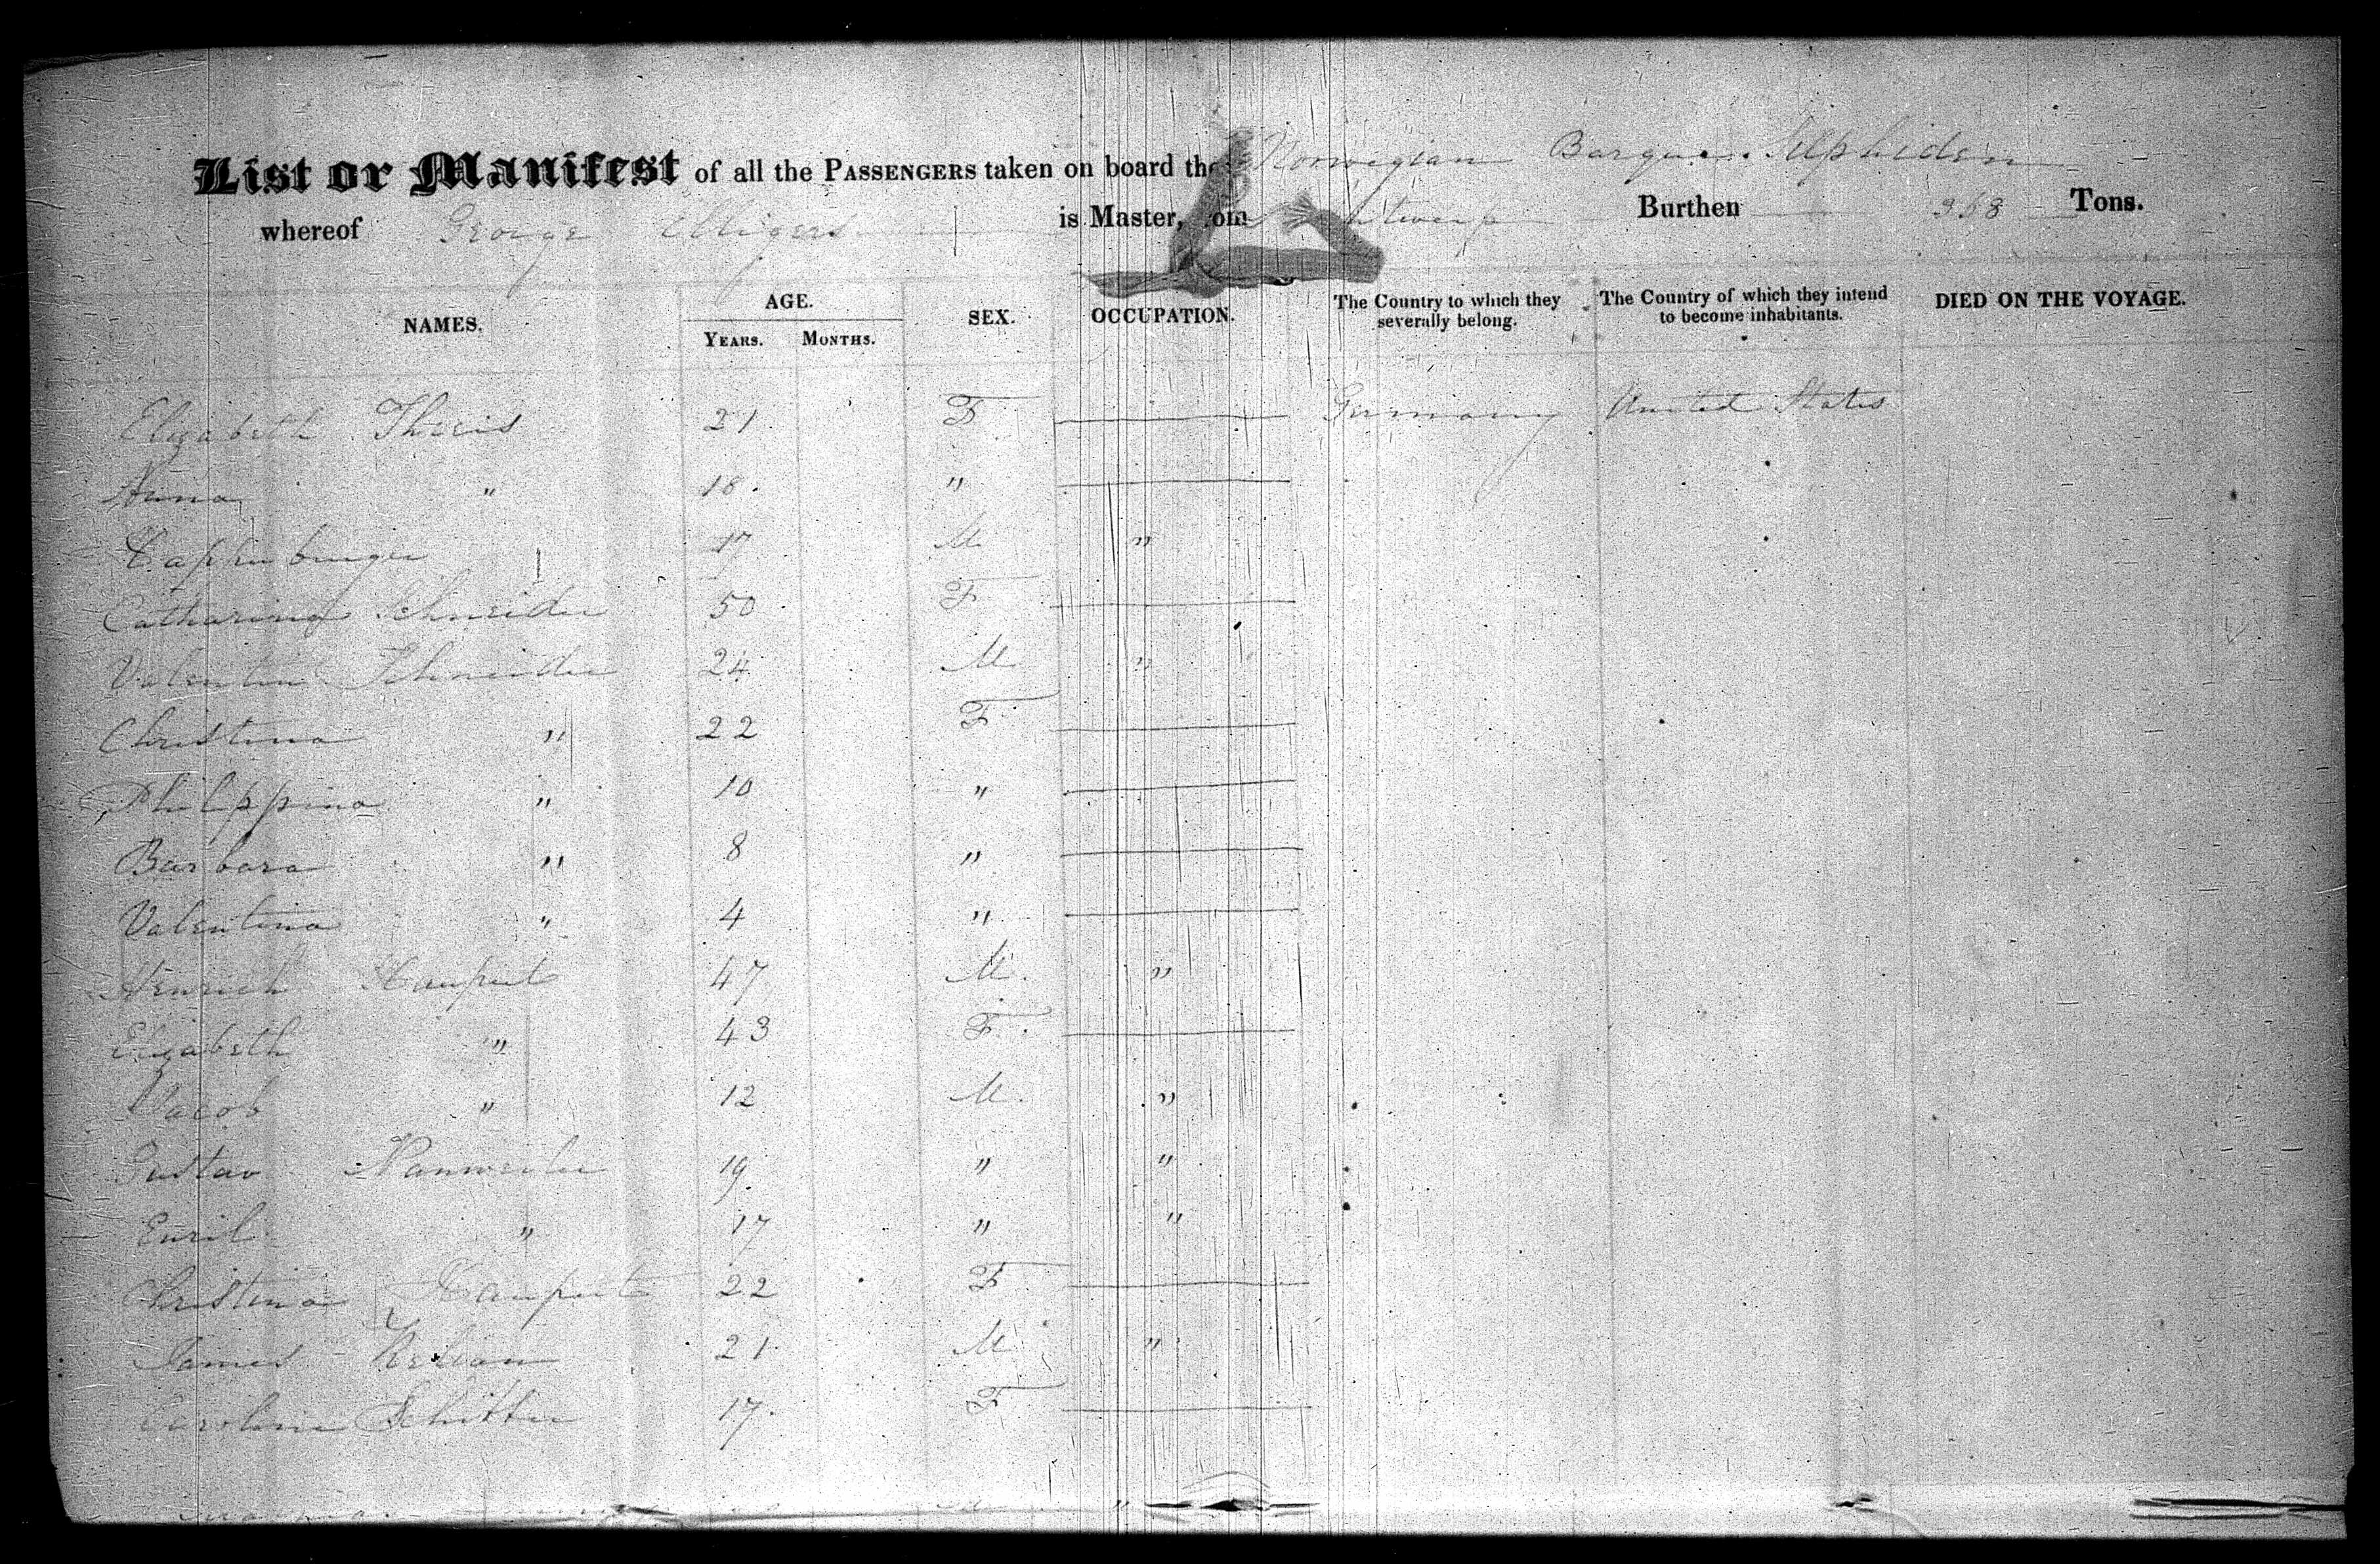 List or Manifest of all the PASSENGERS taken on board the Norwegian Barque Sylphiden
whereof George is Master, from Antwerp Burthen 368 Tons.
NAMES. AGE. SEX. OCCUPATION. The Country to which they severally belong. The Country of which they intend to become inhabitants. DIED ON THE VOYAGE.
YEARS. MONTHS.
Elizabeth Theis 21 F Germany United States
Anna " 18. "
17 M "
Catharina Schneider 50 F
Valentin Schneider 24 M "
Christina " 22 F
Philppina " 10 "
Barbara " 8 "
Valentina " 4 "
Henrich Haupert 47 M. "
Elizabeth " 43 F.
Jacob " 12 M. "
Gustav 19 " "
Emil " 17 " "
Christina Haupert 22 F
James 21 M "
Caroline 17. F